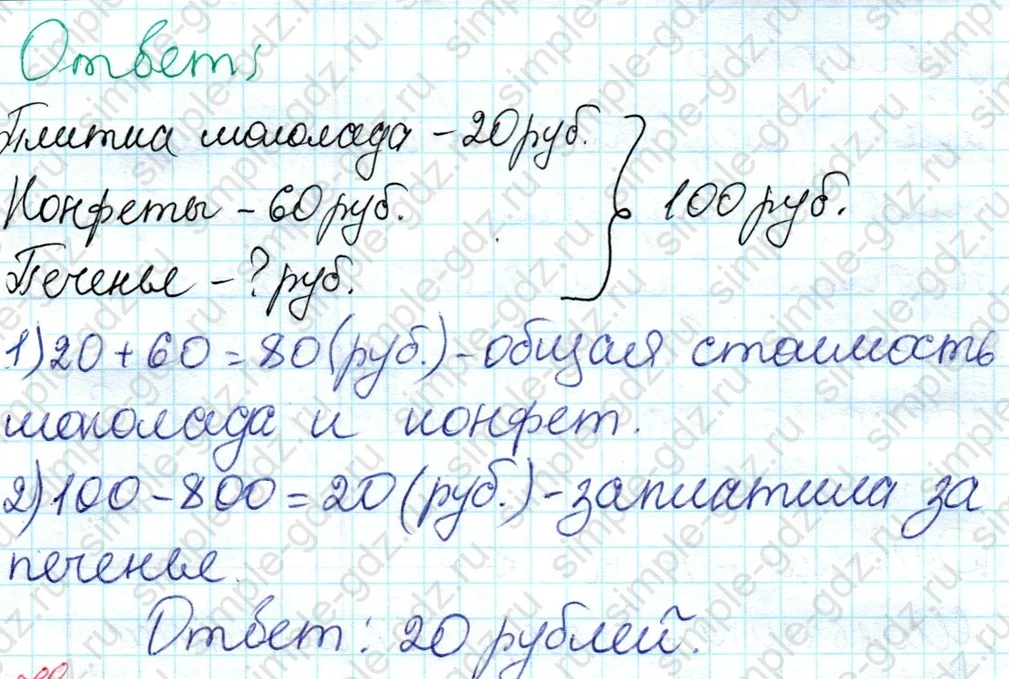 Ответ:
Плитка шоколада - 20 руб.
Конфеты - 60 руб.
Печенье - ? руб.
100 руб.
1) 20 + 60 = 80 (руб.) - общая стоимость
шоколада и конфет.
2) 100 - 800 = 20 (руб.) - заплатила за
печенье.
Ответ: 20 рублей.
simple-gdz.ru